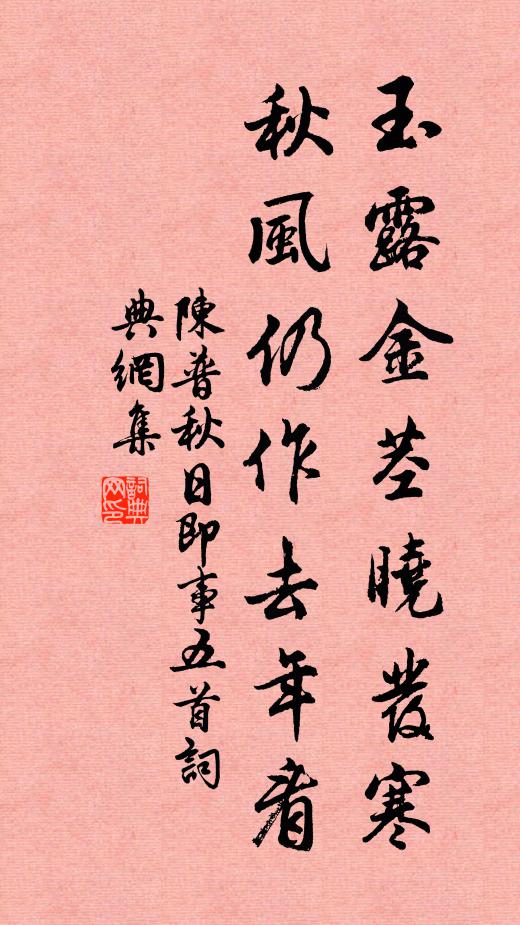 玉露金莖曉發寒
秋風仍作去年看
陳普秋日即事五首詞
典網集
詞典網印